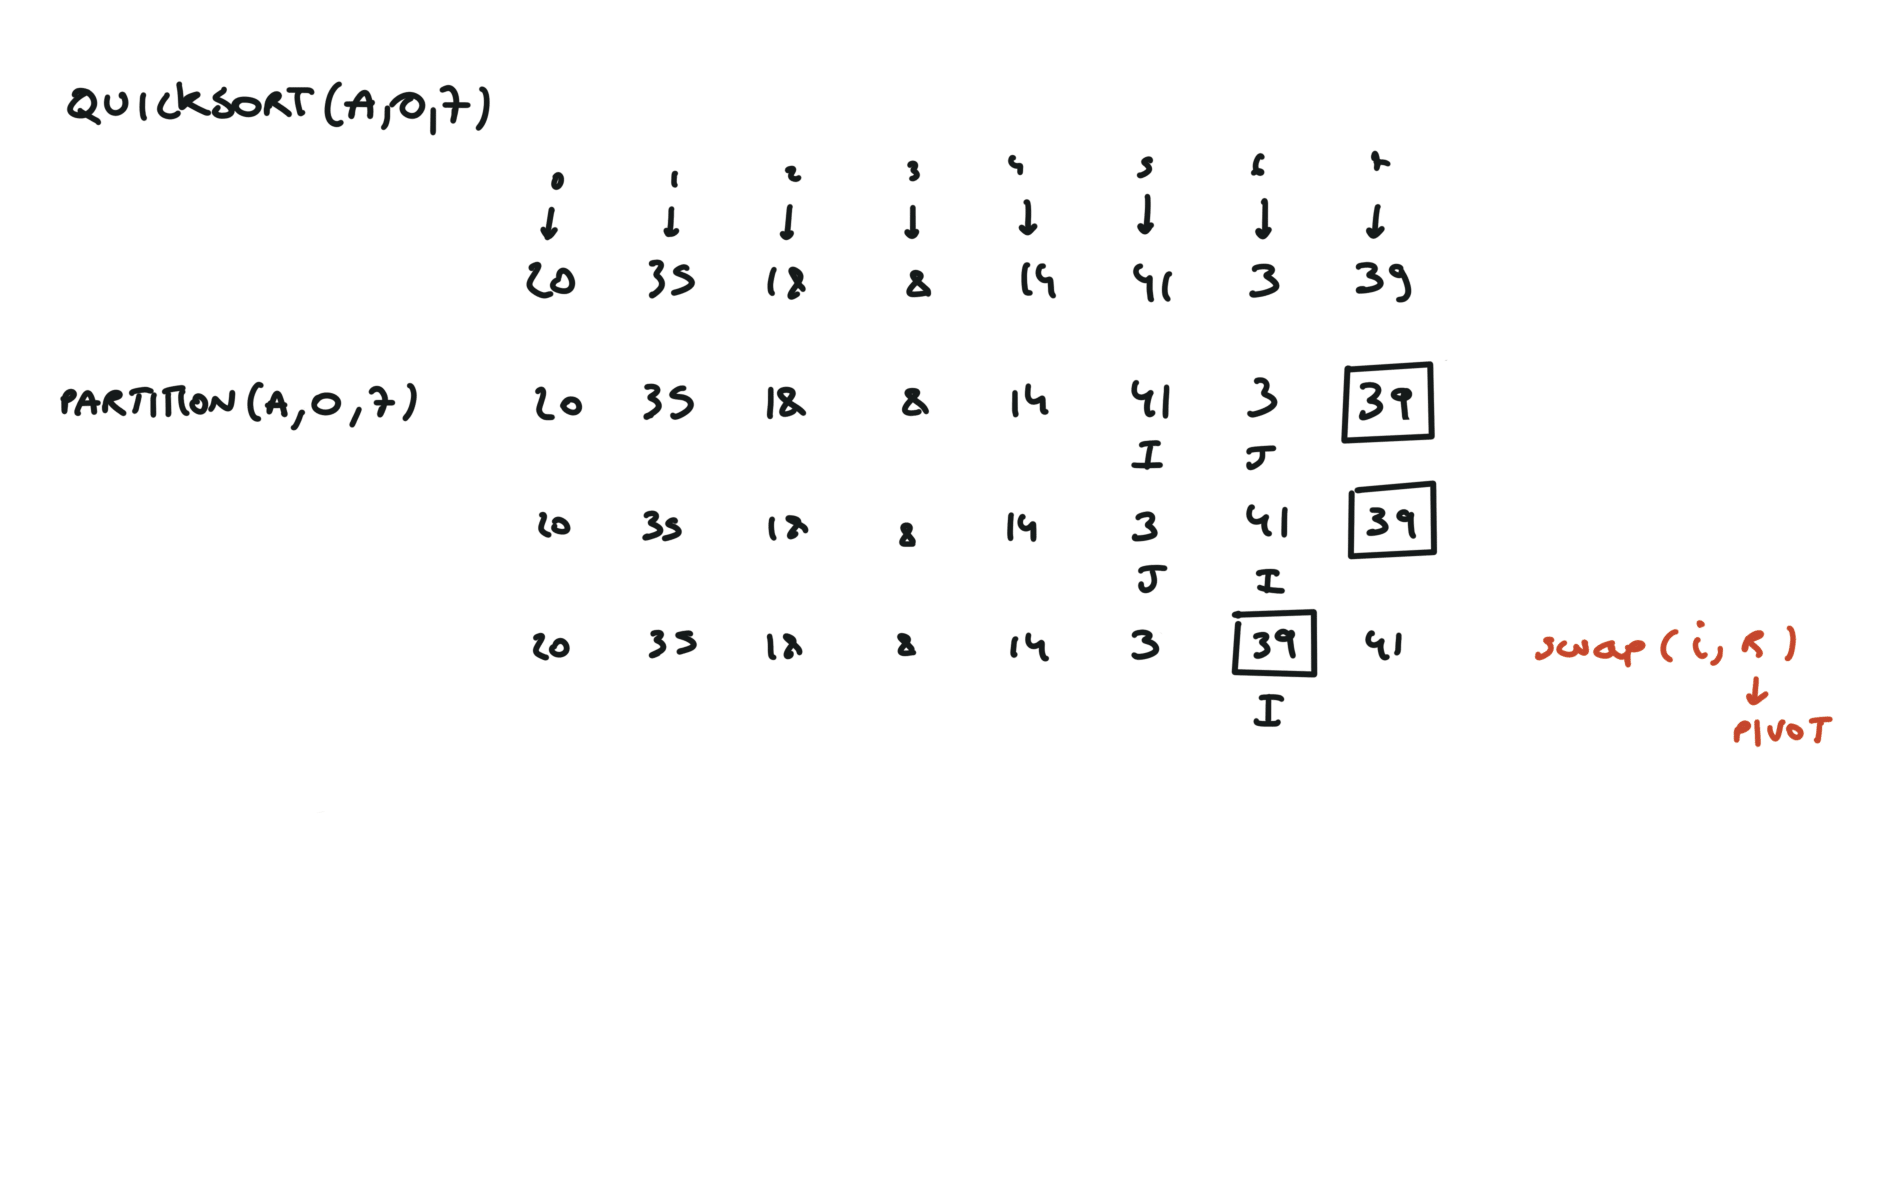 QUICKSORT(A,0,7)
0 1 2 3 4 5 6 7
20 35 18 8 14 41 3 39
PARTITION(A,0,7) 20 35 18 8 14 41 3 39
I J
20 35 18 8 14 3 41 39
J I
20 35 18 8 14 3 39 41 swap(i, R)
I
PIVOT